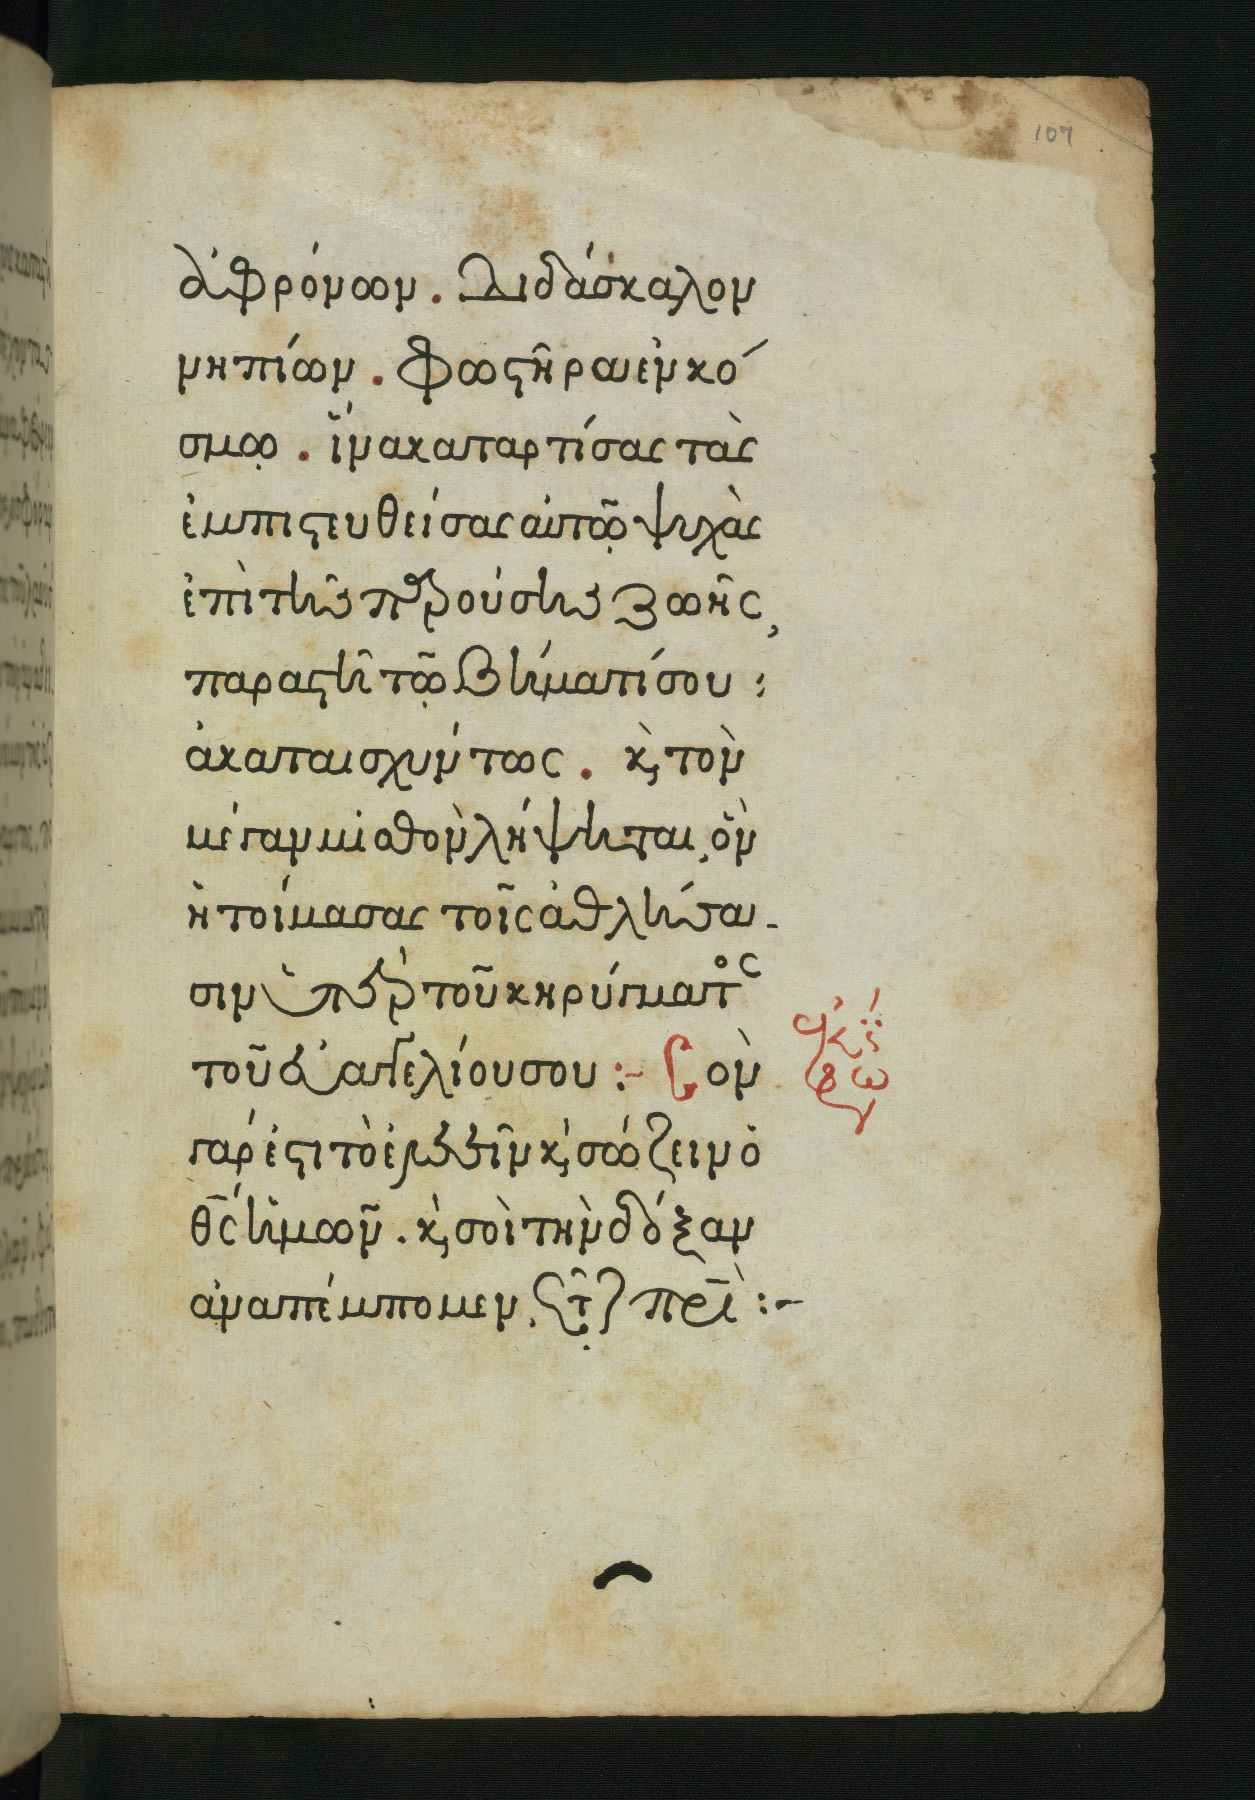 107
ἀφρόνων. Διδάσκαλον
νηπίων. Φωστῆρα ἐν κό
σμῳ. ἵνα καταρτίσας τὰς
ἐμπιστευθείσας αὐτῷ ψυχὰς
ἐπὶ τῆς παρούσης ζωῆς,
παραστῇ τῷ βήματί σου:
ἀκαταισχύντως. κ, τὸν
μέγαν μισθὸν λήψηται, ὃν
ἡτοίμασας τοῖς ἀθλήσα-
σιν ὑπὲρ τοῦ κηρύγματος
τοῦ εὐαγγελίου σου:- Σὸν
γάρ ἐστι τὸ ἐλεεῖν κ, σώζειν ὁ
θς ἡμῶν. κ, σοὶ τὴν δόξαν
ἀναπέμπομεν. τῷ πρὶ:-